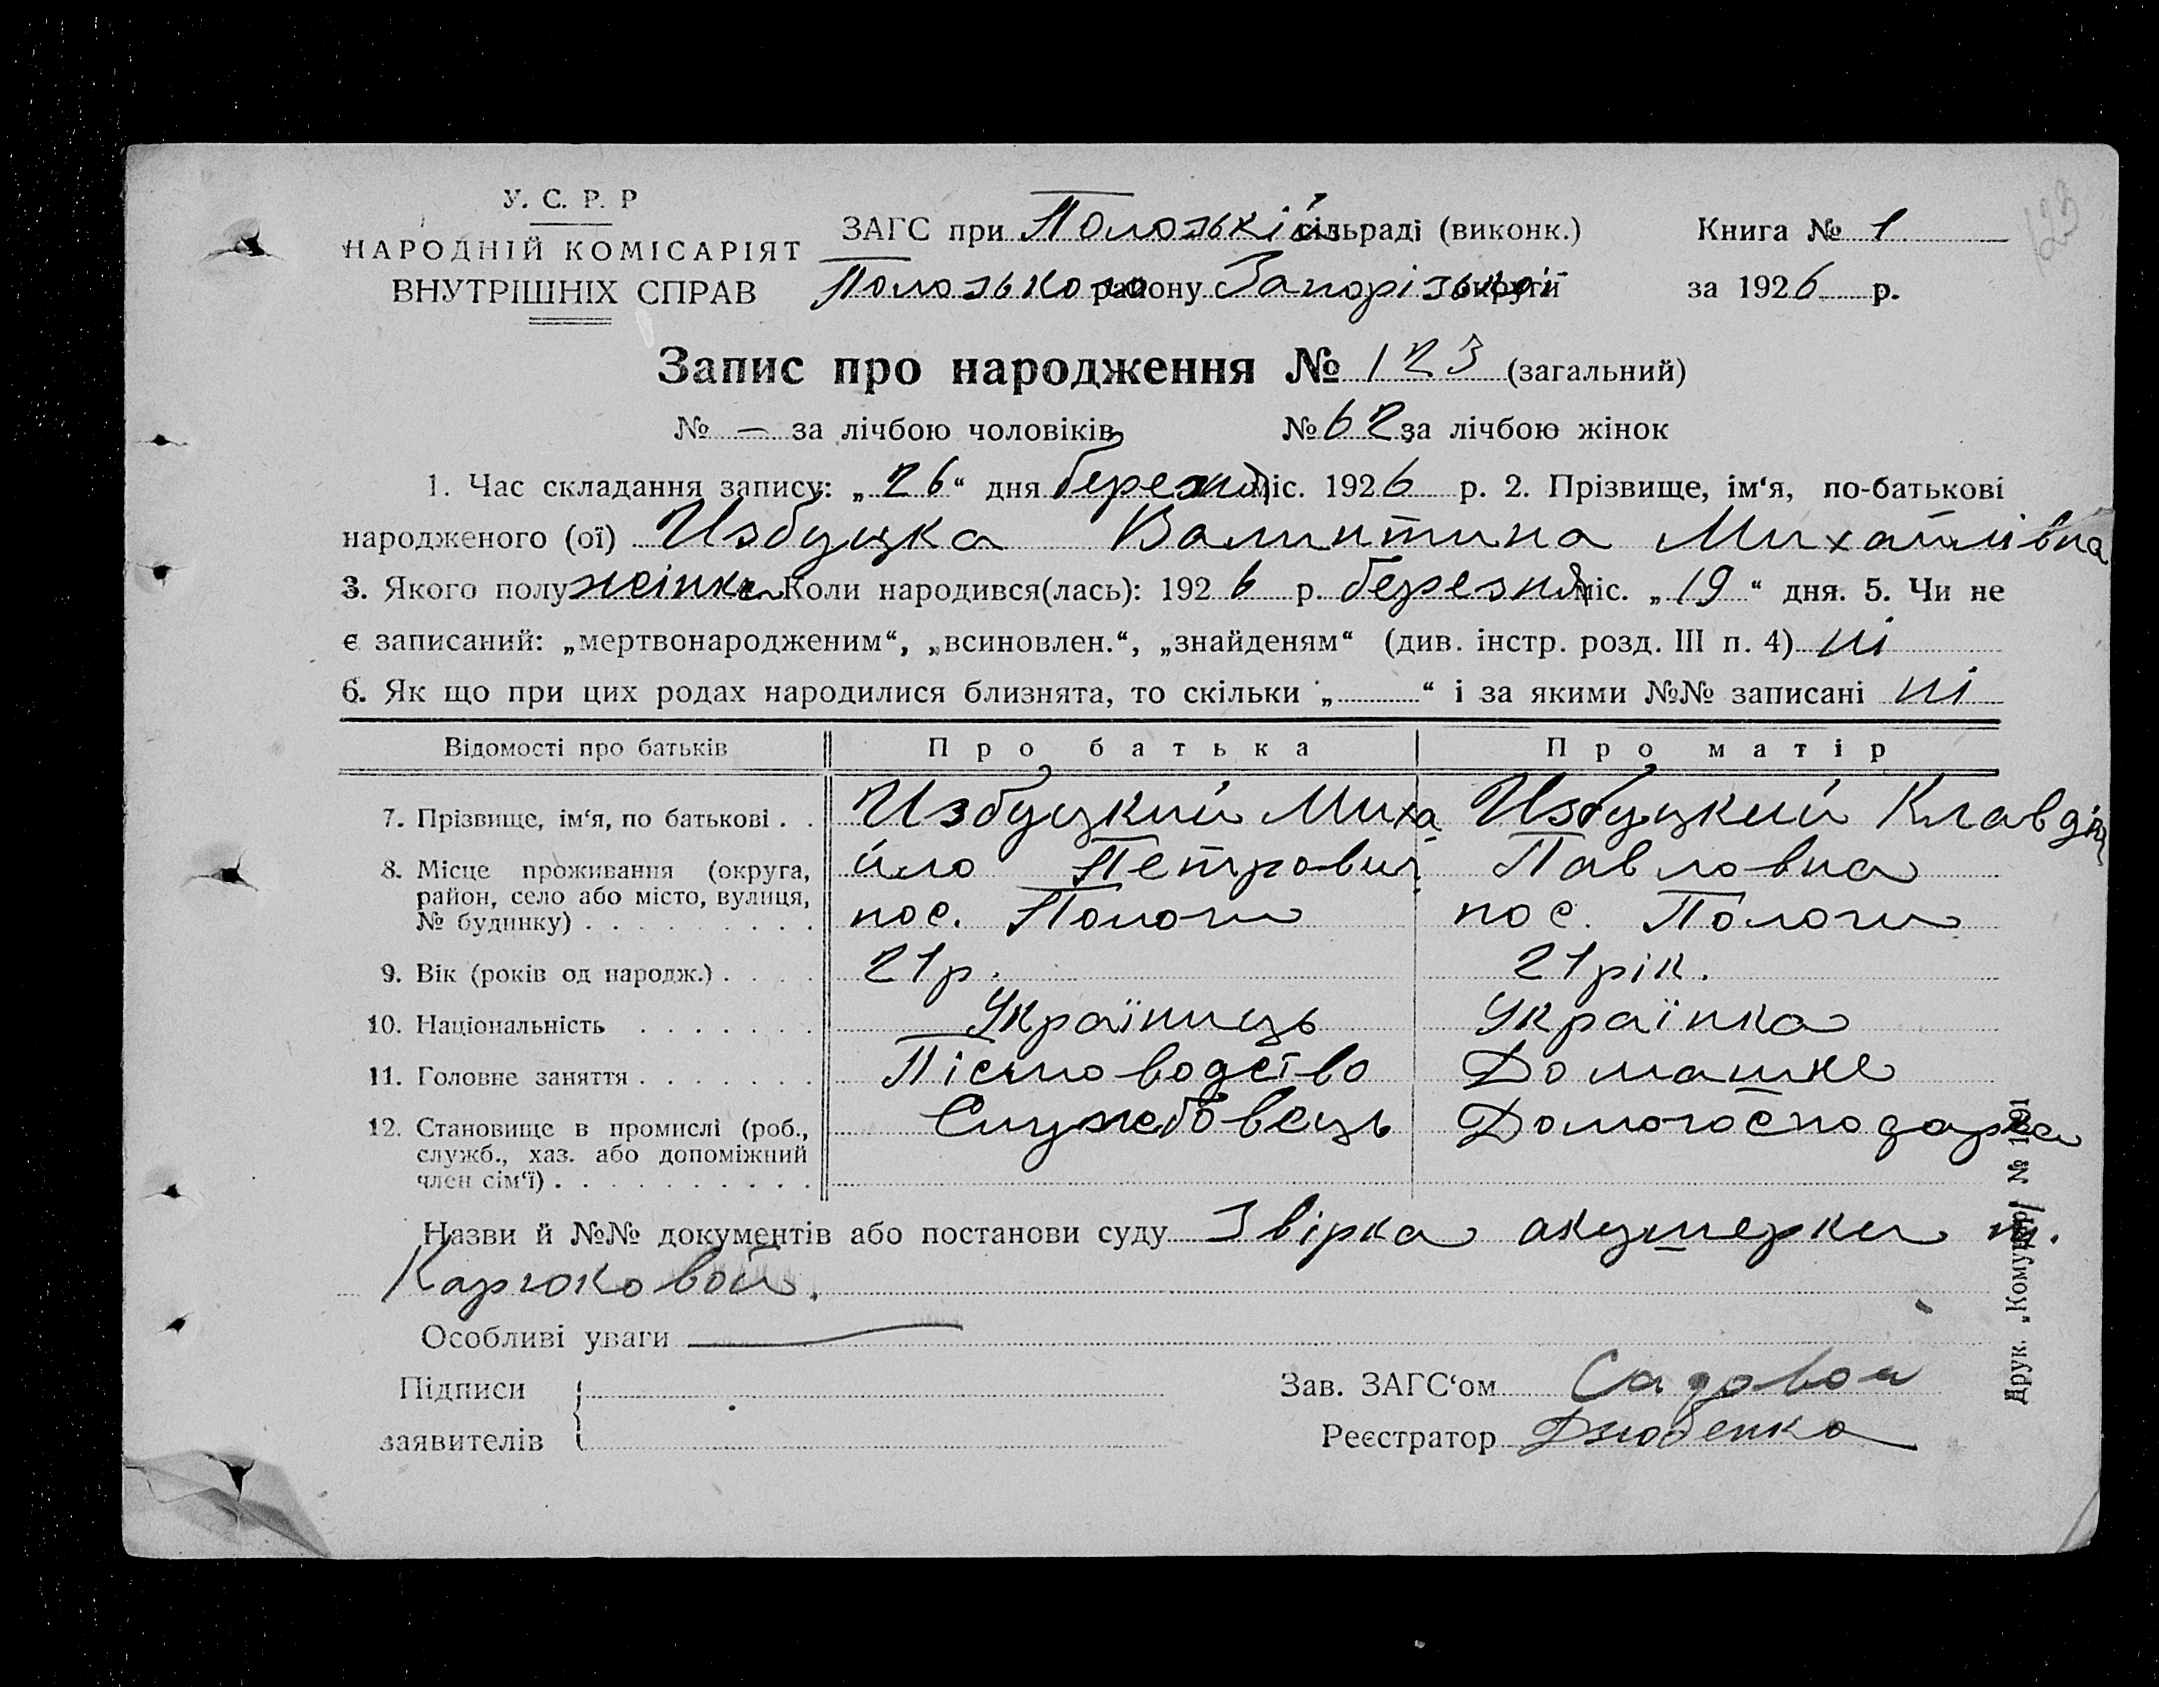 У. С. Р. Р
НАРОДНІЙ КОМІСАРІЯТ
ВНУТРІШНІХ СПРАВ
ЗАГС при Полозькій сільраді (виконк.)
Полозького району Запорізької округи
Книга № 1
за 1926 р.
123
Запис про народження № 123 (загальний)
№ — за лічбою чоловіків № 62 за лічбою жінок
1. Час складання запису: „26“ дня березня міс. 1926 р. 2. Прізвище, ім‘я, по-батькові
народженого (ої) Избуцка Валинтина Михайлівна
3. Якого полу жінка Коли народився(лась): 1926 р. березня міс. „19“ дня. 5. Чи не
є записаний: „мертвонародженим“, „всиновлен.“, „знайденям“ (див. інстр. розд. III п. 4) ні
6. Як що при цих родах народилися близнята, то скільки „ “ і за якими №№ записані ні
Відомості про батьків Про батька Про матір
7. Прізвище, ім‘я, по батькові . . Избуцкий Миха Избуцкий Клавдія
8. Місце проживання (округа, йло Петрович Павловна
район, село або місто, вулиця,
№ будинку) . . . . . . . . . пос. Пологи пос. Пологи
9. Вік (років од народж.) . . . . 21 р. 21 рік.
10. Національність . . . . . . . Українець Українка
11. Головне заняття . . . . . . . Пісмоводство Домашне
12. Становище в промислі (роб., Службовець Домогосподарка
служб., хаз. або допоміжний
член сім‘ї) . . . . . . . . . .
Назви й №№ документів або постанови суду Звірка акушерки т.
Каргоковой.
Особливі уваги —
Підписи
заявителів
Зав. ЗАГС‘ом Садовой
Реєстратор Дзюбенко
Друк. „Комунар“ № 1891